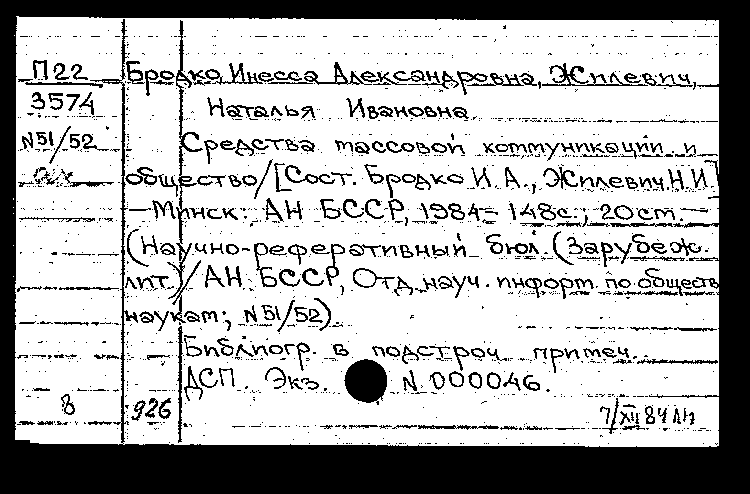 П22 Бродко Инесса Александровна, Жилевич,
3574 Наталья Ивановна.
N51/52 Средства массовой коммуникации и
общество/[Сост. Бродко И.А., Жилевич Н.И.]
—Минск: АН БССР, 1984.— 148с.; 20см.—
(Научно-реферативный бюл. (Зарубеж.
лит.)/АН БССР, Отд. науч. информ. по обществ.
наукам; N51/52).
Библиогр. в подстроч. примеч.
ДСП. Экз. N 000046.
8 926 7/XII 84